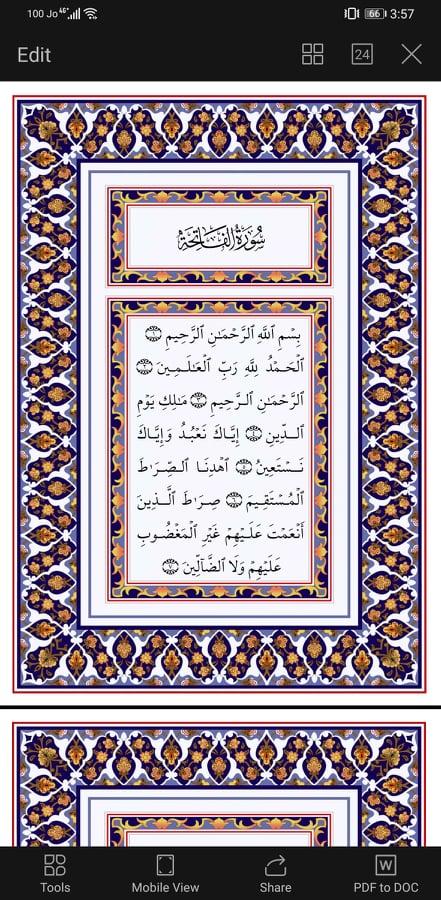 100 Jo 4G+ 66 3:57
Edit 24
سُورَةُ الفَاتِحَةِ
بِسْمِ ٱللَّهِ ٱلرَّحْمَـٰنِ ٱلرَّحِيمِ ١
ٱلْحَمْدُ لِلَّهِ رَبِّ ٱلْعَـٰلَمِينَ ٢
ٱلرَّحْمَـٰنِ ٱلرَّحِيمِ ٣ مَـٰلِكِ يَوْمِ
ٱلدِّينِ ٤ إِيَّاكَ نَعْبُدُ وَإِيَّاكَ
نَسْتَعِينُ ٥ ٱهْدِنَا ٱلصِّرَٰطَ
ٱلْمُسْتَقِيمَ ٦ صِرَٰطَ ٱلَّذِينَ
أَنْعَمْتَ عَلَيْهِمْ غَيْرِ ٱلْمَغْضُوبِ
عَلَيْهِمْ وَلَا ٱلضَّآلِّينَ ٧
Tools Mobile View Share W PDF to DOC